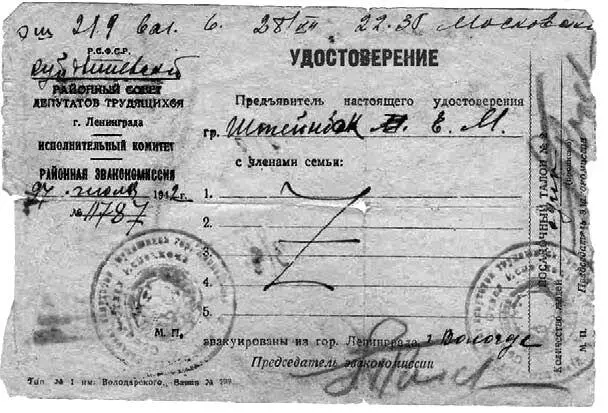 219 ваг. 6. 28/VII 22.30 Московск
Р.С.Ф.С.Р.
Куйбышевский
РАЙОННЫЙ СОВЕТ
ДЕПУТАТОВ ТРУДЯЩИХСЯ
г. Ленинграда
ИСПОЛНИТЕЛЬНЫЙ КОМИТЕТ
РАЙОННАЯ ЭВАКОКОМИССИЯ
27 июля 1942 г.
№ 11787
М. П.
УДОСТОВЕРЕНИЕ
Предъявитель настоящего удостоверения
гр. Штейнбок Е. М.
с членами семьи:
1.
2.
3.
4.
5.
эвакуированы из гор. Ленинграда, г Вологде
Председатель эвакокомиссии
Тип. № 1 им. Володарского, Заказ №
ПОСАДОЧНЫЙ ТАЛОН №
Количество
один
(прописью)
М. П. Председатель Эвакокомиссии